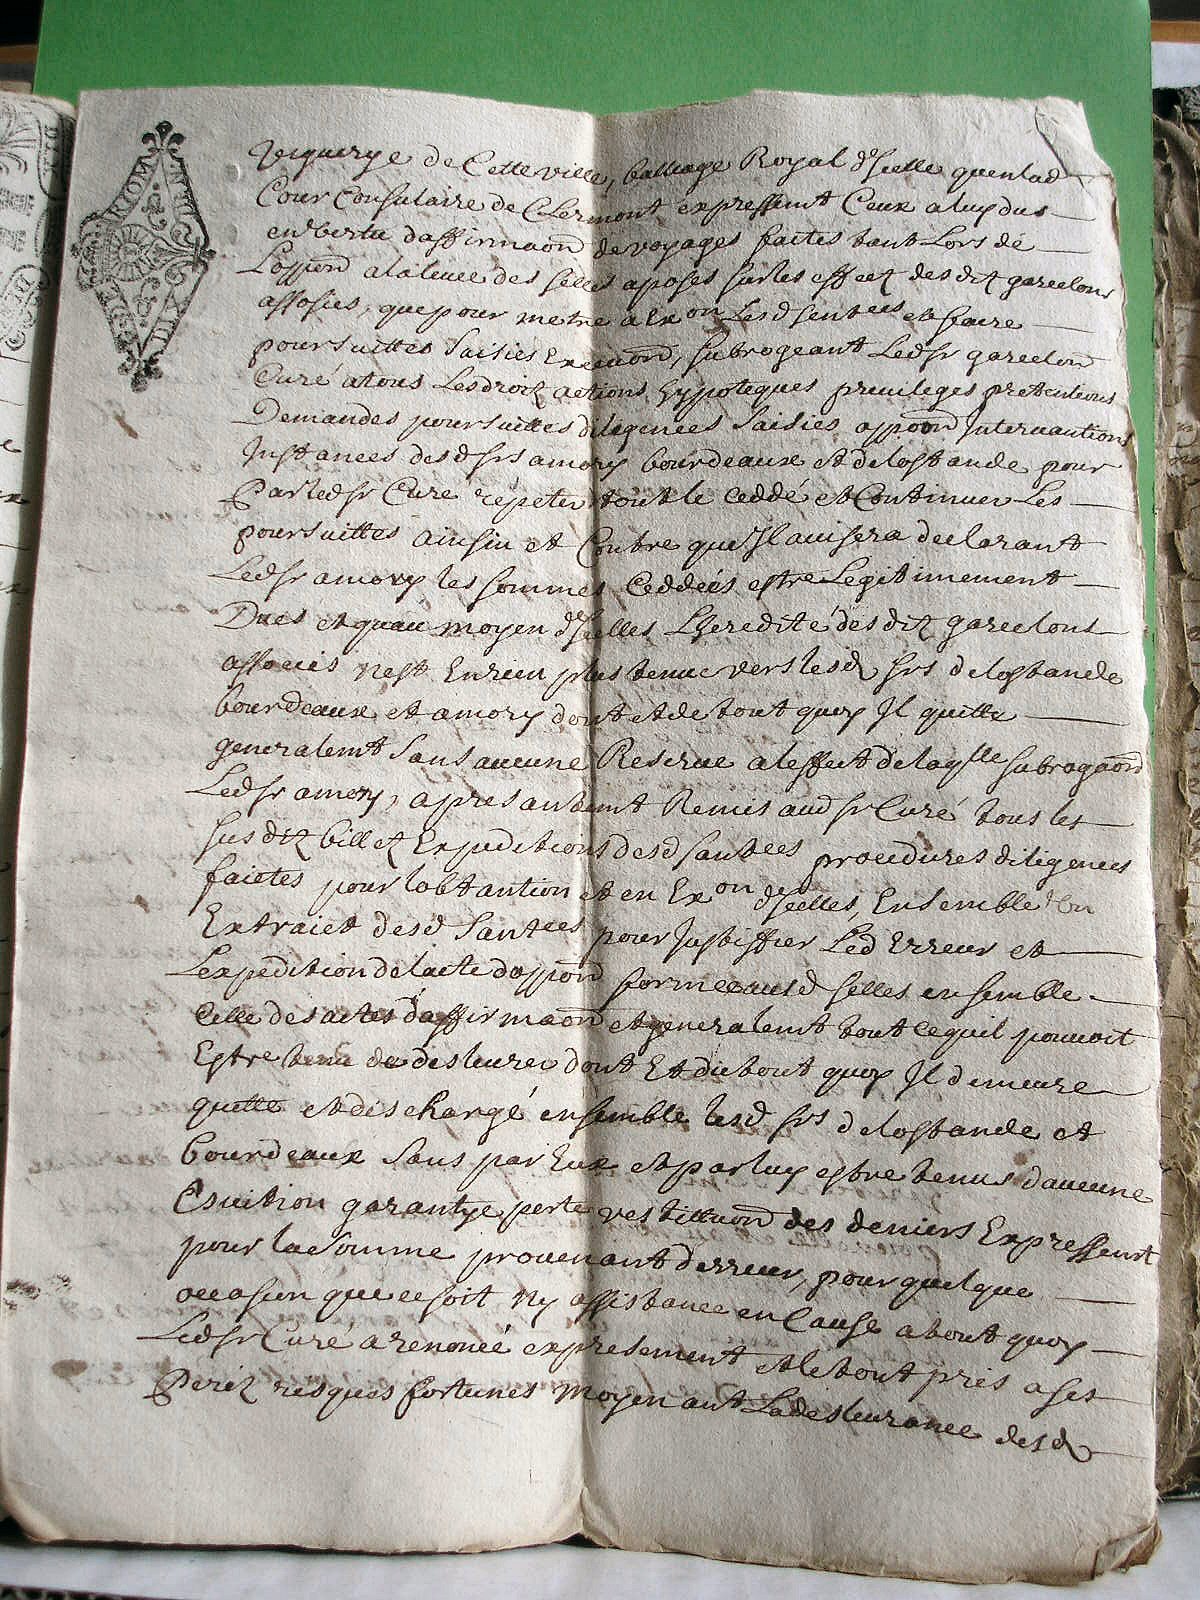 viguerye de Cette ville, balliage Royal d'Jcelle quenlad
Cour Consulaire de Clermont expressemt Ceux a luy dus
en vertu daffirmaõn de voyages faites tant Lors de
Loppoõn a la leuee des selles aposes sur les effectz des ditz garcelons
assosies, que pour metre a Exon Lesd sentees et faire
poursuittes saisies Execuoõn, subrogeant Ledsr garcelon
Curé a tous Les droitz actions hypoteques priuileges pretentions
Demandes poursuittes diligences saisies oppoõn Interuantions
Instances desd srs amory bourdeaux et delostande pour
Par ledsr Curé repeter tout le Ceddé et Continuer Les
poursuittes ainsin et Contre que Jl auisera declarant
Ledsr amory les sommes Ceddées estre Legitimement
Dues et quau moyen d'Jcelles Lheredité des ditz garcelons
associés nest En rien plus tenue vers lesd srs delostande
bourdeaux et amory dont et de tout quoy Jl quitte
generalemt sans aucune Reserue a leffect de laqlle subrogaõn
Ledsr amory, apresantemt Remis aud sr Curé tous les
susditz billetz Expeditions desd santees procedures diligences
faictes pour lobtantion et en Exon d'Jcelles, Ensemble un
Extraict desd santees pour justiffier Led Erreur et
Lexpedition de lacte doppoõn formee ausd selles ensemble
Celle des actes daffirmaõn et generalemt tout ce quil pouuoit
Estre tenu de desliurer dont Et du tout quoy Jl demeure
quitte et dischargé ensemble lesd srs delostande et
bourdeaux sans par Eux et par luy estre tenus daucune
Esuition garantye perte restittuoõn des deniers Expressemt
pour la somme prouenant derreur, pour quelque
occasion que ce soit ny assistance en Cause a tout quoy
Ledsr Curé a renoncé expresement et le tout pris a ses
Perilz risques fortunes moyenant La desliurance desd